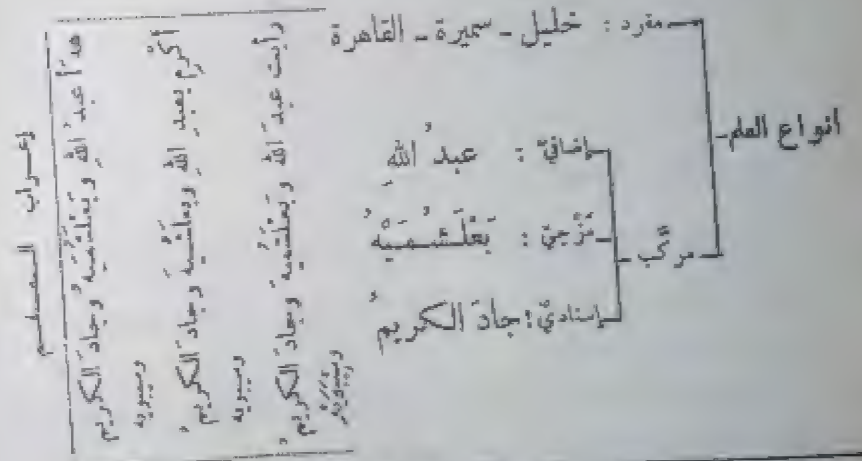 أنواع العلم
مفرد : خليل - سميرة - القاهرة
مركّب
إضافيّ : عبدُ اللهِ
مَزْجيّ : بَعْلَشُمَيْهُ
إسناديّ : جادَ الكريمُ
إعراب العلم
هذا عبدُ اللهِ وبَعْلَشُمَيْهُ وجادَ الكريمُ
وسيبويه
أكرِم بعبدِ اللهِ وبعلشميهَ وجادَ الكريمُ
وسيبويه
رأيت عبدَ اللهِ وبعلشميهَ وجادَ الكريمُ
وسيبويه